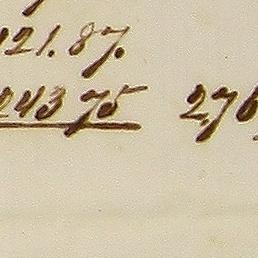 121.87.
243 75 2,76